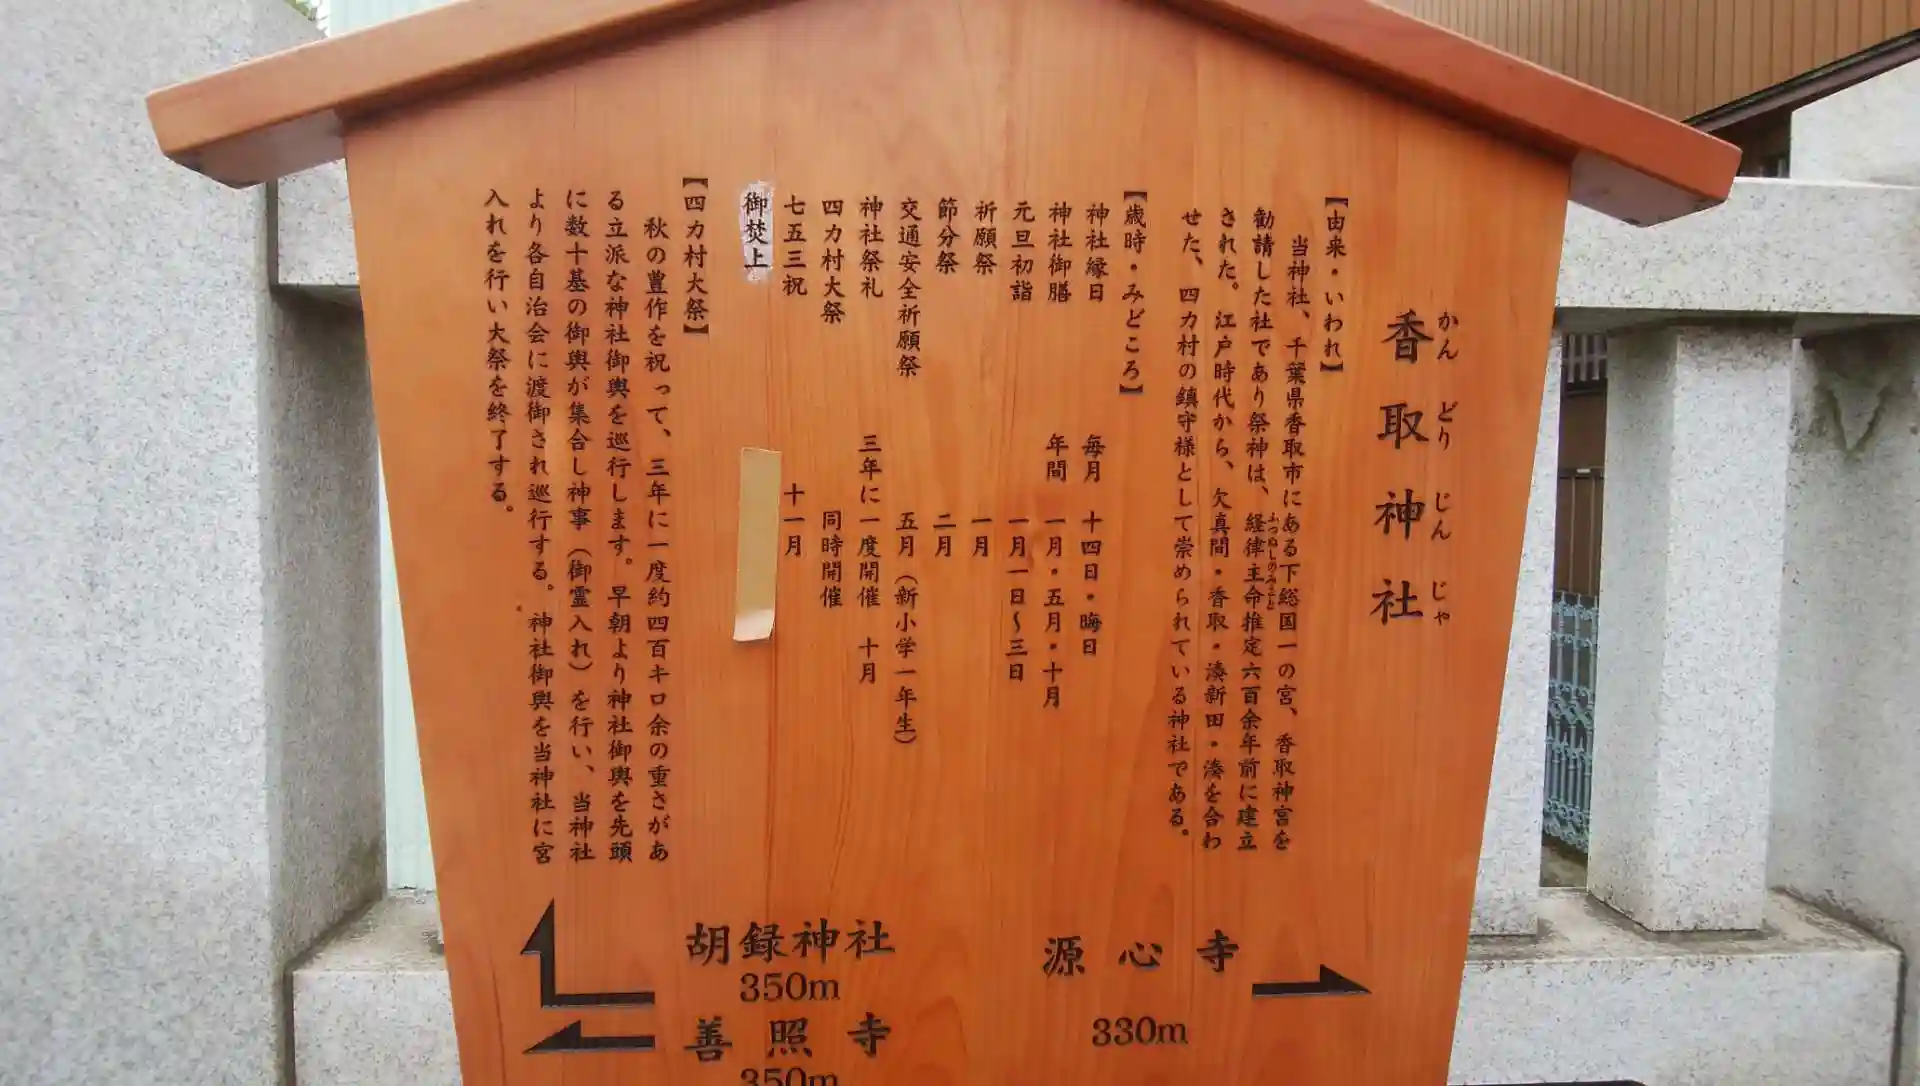 香取神社
かんどりじんじゃ
【由来・いわれ】
当神社、千葉県香取市にある下総国一の宮、香取神宮を
勧請した社であり祭神は、経律主命推定六百余年前に建立
ふつぬしのみこと
された。江戸時代から、欠真間・香取・湊新田・湊を合わ
せた、四カ村の鎮守様として崇められている神社である。
【歳時・みどころ】
神社縁日 毎月 十四日・晦日
神社御膳 年間 一月・五月・十月
元旦初詣 一月一日〜三日
祈願祭 一月
節分祭 二月
交通安全祈願祭 五月（新小学一年生）
神社祭礼 三年に一度開催 十月
四カ村大祭 同時開催
七五三祝 十一月
御焚上
【四カ村大祭】
秋の豊作を祝って、三年に一度約四百キロ余の重さがあ
る立派な神社御輿を巡行します。早朝より神社御輿を先頭
に数十基の御輿が集合し神事（御霊入れ）を行い、当神社
より各自治会に渡御され巡行する。神社御輿を当神社に宮
入れを行い大祭を終了する。
源心寺
330m
胡録神社
350m
善照寺
350m